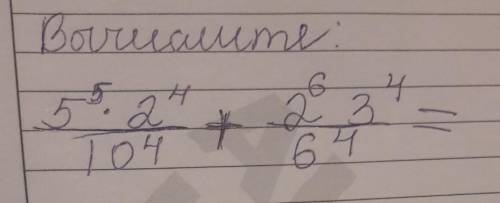 Вычислите:
5⁵ · 2⁴ / 10⁴ + 2⁶ 3⁴ / 6⁴ =